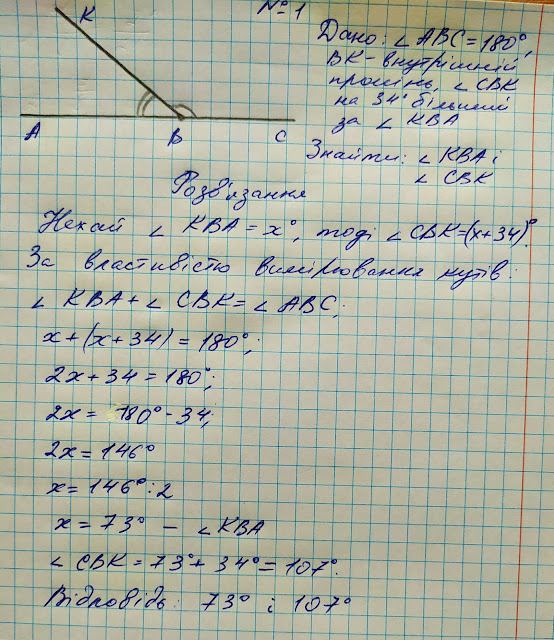 № 1
K
A
B
C
Дано: ∠ ABC = 180°,
BK - внутрішній
промінь, ∠ CBK
на 34° більший
за ∠ KBA
Знайти: ∠ KBA і
∠ CBK
Розв'язання
Нехай ∠ KBA = x°, тоді ∠ CBK = (x+34)°.
За властивістю вимірювання кутів:
∠ KBA + ∠ CBK = ∠ ABC;
x + (x + 34) = 180°;
2x + 34 = 180°;
2x = 180° - 34;
2x = 146°
x = 146° : 2
x = 73° – ∠KBA
∠ CBK = 73° + 34° = 107°.
Відповідь: 73° і 107°